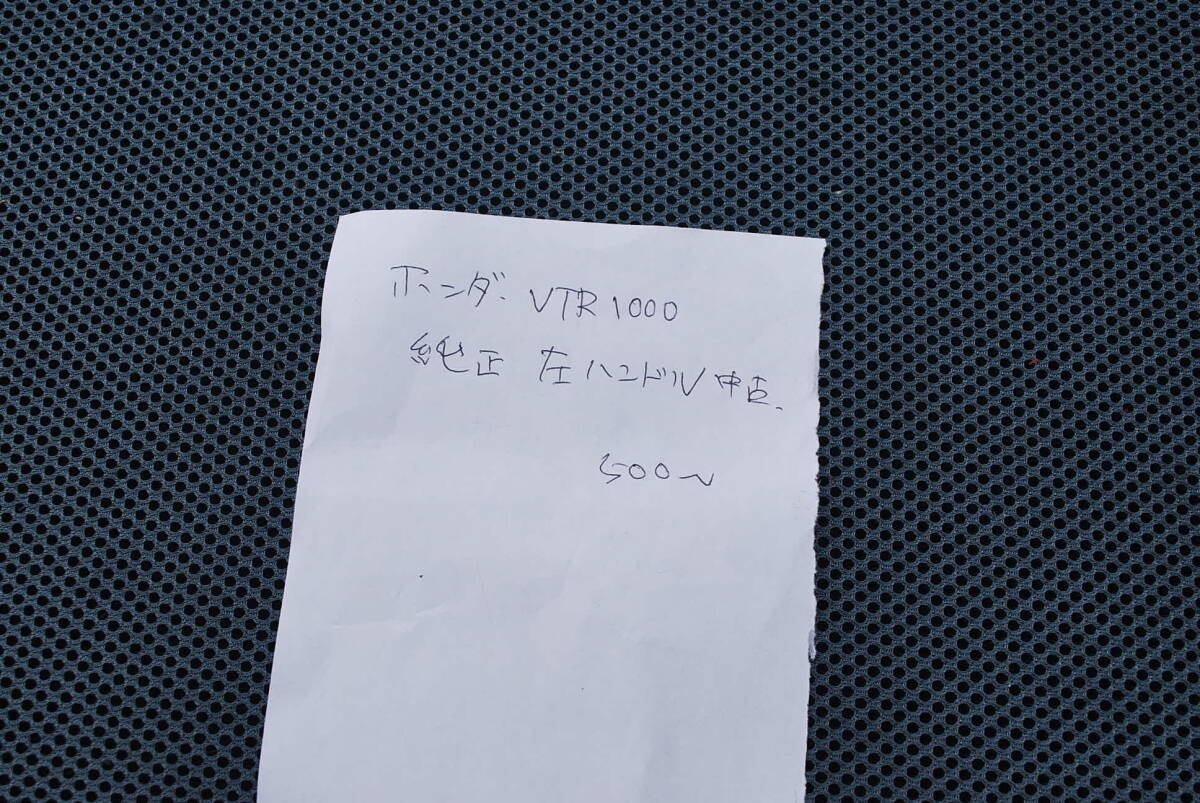 ホンダ. VTR1000
純正 左ハンドル 中古.
500～